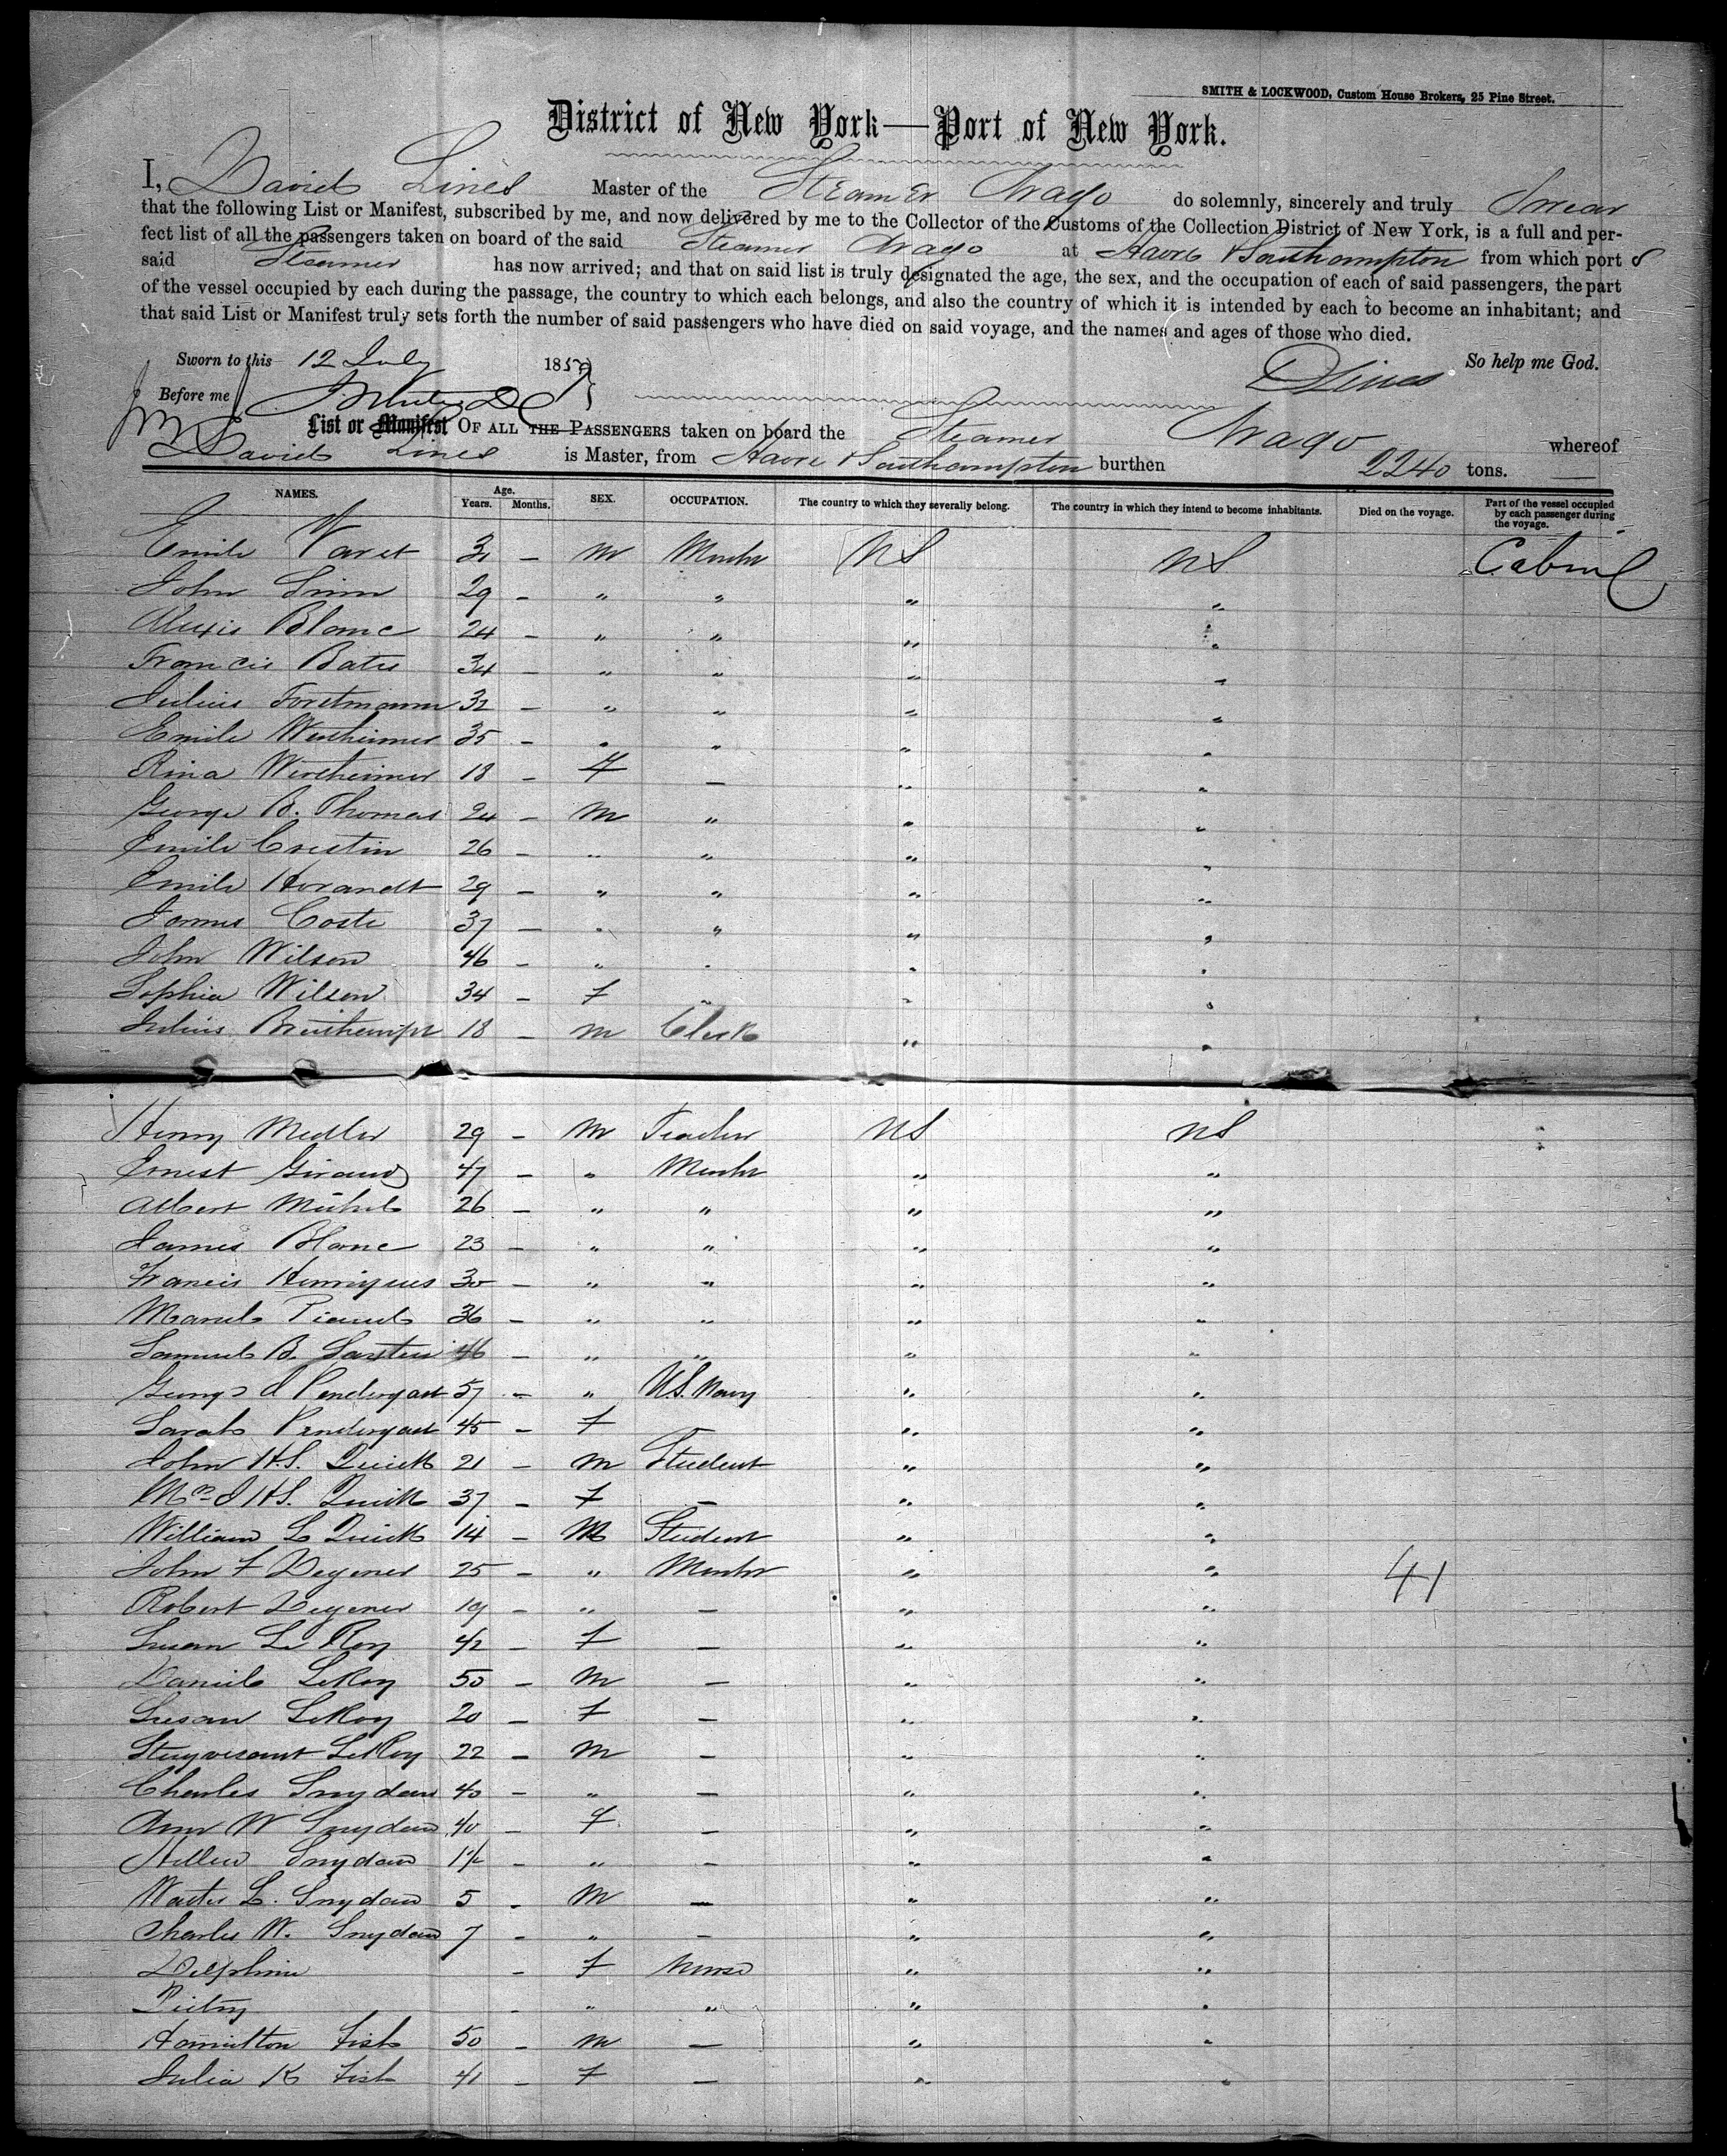 SMITH & LOCKWOOD, Custom House Brokers, 25 Pine Street.
District of New York—Port of New York.
I, David Lines Master of the Steamer Arago do solemnly, sincerely and truly Swear
that the following List or Manifest, subscribed by me, and now delivered by me to the Collector of the Customs of the Collection District of New York, is a full and per-
fect list of all the passengers taken on board of the said Steamer Arago at Havre & Southampton from which port s
said Steamer has now arrived; and that on said list is truly designated the age, the sex, and the occupation of each of said passengers, the part
of the vessel occupied by each during the passage, the country to which each belongs, and also the country of which it is intended by each to become an inhabitant; and
that said List or Manifest truly sets forth the number of said passengers who have died on said voyage, and the names and ages of those who died.
Sworn to this 12 July 1859 So help me God.
Before me D Lines
List or Manifest OF ALL THE PASSENGERS taken on board the Steamer Arago whereof
David Lines is Master, from Havre & Southampton burthen 2240 tons.
NAMES. Age. Years. Months. SEX. OCCUPATION. The country to which they severally belong. The country in which they intend to become inhabitants. Died on the voyage. Part of the vessel occupied by each passenger during the voyage.
Emile Varet 31 - M Mercht US US Cabin
John Simn 29 - " " " "
Alexis Blanc 24 - " " " "
Francis Bates 34 - " " " "
Julius Forstmann 32 - " " " "
Emile Wertheimer 35 - " " " "
Rina Wertheimer 18 - F — " "
George B. Thomas 24 - M " " "
Emile Crestin 26 - " " " "
Emile Horandt 29 - " " " "
James Coste 37 - " " " "
John Wilson 46 - " " " "
Sophia Wilson 34 - F " " "
Julius 18 - M Clerk " "
Henry Medler 29 - M Teacher US US
Ernest Giraud 47 - " Mercht " "
Albert Michel 26 - " " " "
James Blanc 23 - " " " "
Francis Henriques 30 - " " " "
36 - " " " "
Samuel B. 46 - " " " "
George J Pendergast 57 - " U.S. Navy " "
Sarah Pendergast 45 - F — " "
John H.S. Quick 21 - M Student " "
Mrs J H S. Quick 37 - F — " "
William L Quick 14 - M Student " "
John F Degener 25 - " Mercht " " 41
Robert Degener 19 - " — " "
Susan Le Roy 42 - F — " "
Daniel LeRoy 50 - M — " "
Susan LeRoy 20 - F — " "
Stuyvesant LeRoy 22 - M — " "
Charles Suydam 40 - " — " "
Ann W Suydam 40 - F — " "
Hellen Suydam 1½ - " — " "
Walter L. Suydam 5 - M — " "
Charles W. Suydam 7 - " — " "
Delphine - F Nurse " "
- " " " "
Hamilton Fish 50 - M — " "
Julia K Fish 41 - F — " "